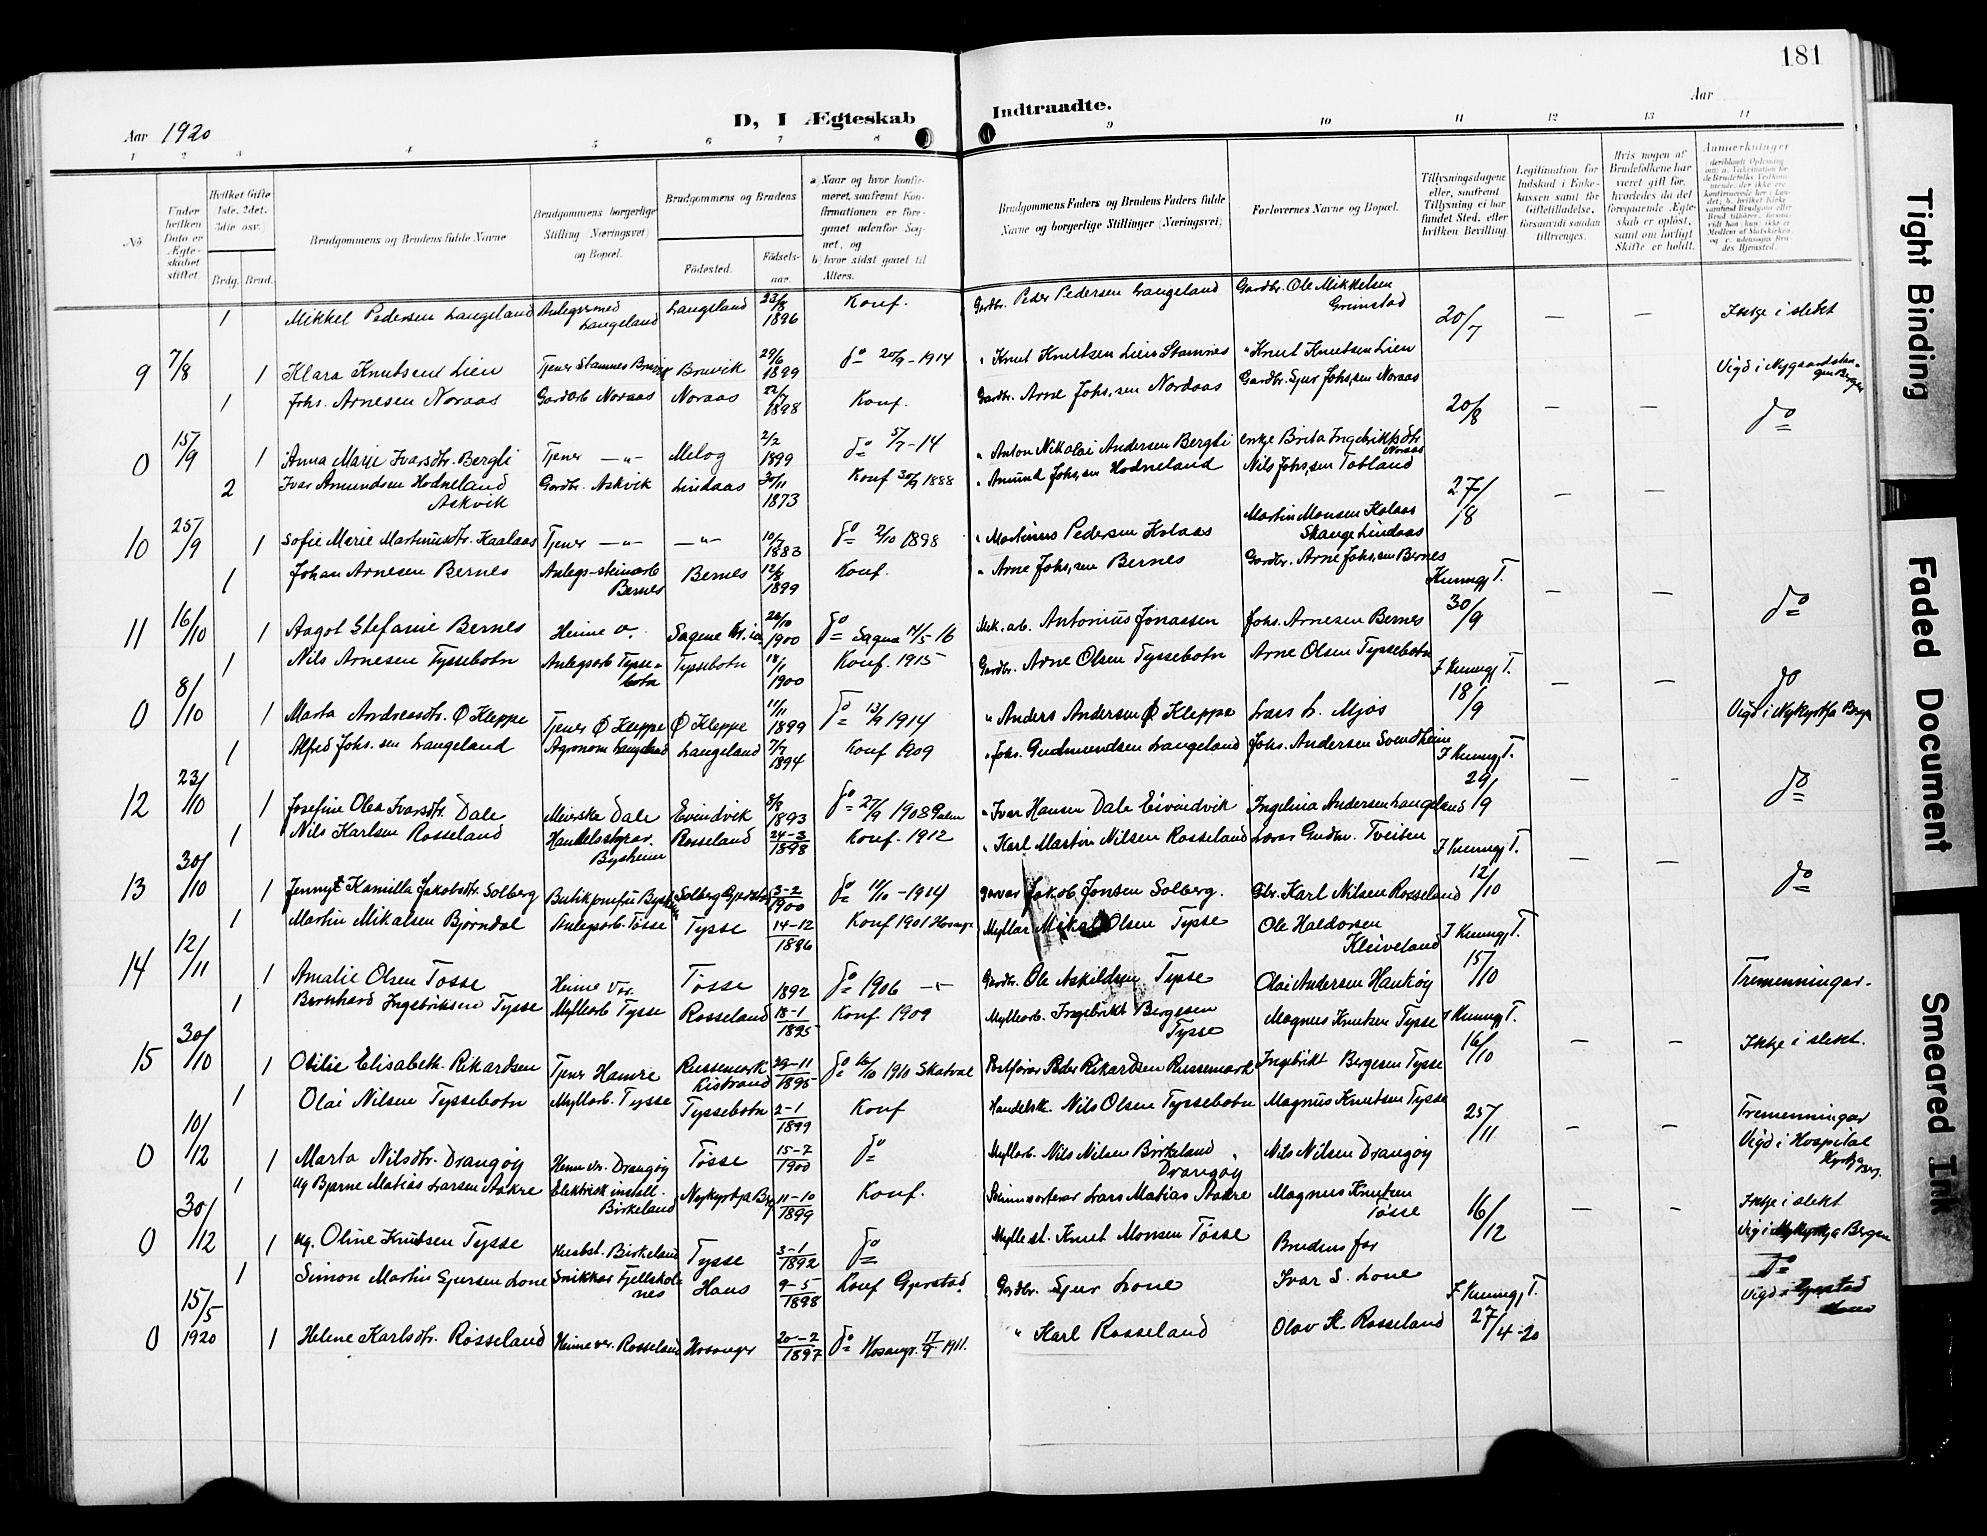 181
Aar 1920
D, I Ægteskab Indtraadte.
Aar
1 2 3 4 5 6 7 8 9 10 11 12 13 14
No
Under hvilken Dato er Ægteskabet stiftet.
Hvilket Gifte 1ste, 2det, 3die osv.
Brdg. Brud.
Brudgommens og Brudens fulde Navne
Brudgommens borgerlige Stilling (Næringsvei) og Bopæl.
Brudgommens og Brudens
Födested.
Födselsaar.
a) Naar og hvor konfirmeret, saafremt Konfirmationen er foregaaet udenfor Sognet, og
b) hvor sidst gaaet til Alters.
Brudgommens Faders og Brudens Faders fulde Navne og borgerlige Stillinger (Næringsvei)
Forlovernes Navne og Bopæl.
Tillysningsdagene eller, saafremt Tillysning ei har fundet Sted, efter hvilken Bevilling.
Legitimation for Indskud i Enkekassen samt for Giftetilladelse, forsaavidt saadan tiltrænges.
Hvis nogen af Brudefolkene har været gift för, hvorledes da det foregaaende Ægteskab er oplöst, samt om lovligt Skifte er holdt.
Anmærkninger
1 Mikkel Pedersen Langeland Anlegssmed Langeland Langeland 23/8 1896 Konf. Gardbr. Peder Pedersen Langeland Gardbr. Ole Mikkelsen Grimstad 20/7 — — Ikkje i slekt
9 7/8 1 Klara Knutsen Lien Tjener Stamnes Bruvik Bruvik 29/6 1899 do 20/9 - 1914 " Knut Knutsen Lien Stamnes " Knut Knutsen Lien Vigd i Nygaardstangen Bergen
1 Johs. Arnesen Noraas Gardarb Noraas Noraas 22/7 1898 Konf. Gardbr. Arne Johs,sen Nordaas Gardbr. Sjur Johs,sen Noraas 20/8 — — do
0 15/9 1 Anna Marie Ivarsdtr. Bergli Tjener —"— Meløg 2/2 1899 do 5/7 - 14 " Anton Nikolai Andersen Bergli enkje Brita Ingebriktsdtr Noraas
2 Ivar Amundsen Hodneland Askvik Gardbr. Askvik Lindaas 30/11 1873 Konf 30/9 1888 " Amund Johs,sen Hodneland Nils Johs,sen Tobland 27/8 — —
10 25/9 1 Sofie Marie Martinusdtr. Kaalaas Tjener —"— —"— 10/7 1883 do 2/10 1898 " Martinus Pedersen Kolaas Martin Monsen Kolaas Skange Lindaas
1 Johan Arnesen Bernes Anlegs-steinarb Bernes Bernes 12/8 1899 Konf. " Arne Johs,sen Bernes Gardbr. Arne Johs,sen Bernes Kunngj T. 30/9 — — do
11 16/10 1 Aagot Stefanie Bernes Heime v. Sagene Kr.ia 1900 do Sagene 14/5 - 16 Mek. arb. Antonius Jonassen Johs. Arnesen Bernes
1 Nils Arnesen Tyssebotn Anlegsarb Tyssebotn Tyssebotn 18/1 1900 Konf. 1915 Gardbr. Arne Olsen Tyssebotn Arne Olsen Tyssebotn F Kunngj T. 18/9 — — do
0 8/10 1 Marta Andreasdtr. Ø Kleppe Tjener Ø Kleppe Ø Kleppe 17/11 1899 do 13/9 1914 " Anders Andersen Ø Kleppe Lars L. Mjøs Vigd i Nykyrkja Brgn
1 Alfred Johs.sen Langeland Agronom Langeland Langeland 7/7 1894 Konf 1909 " Johs. Gudmundsen Langeland Johs. Andersen Svendheim F Kunngj T. 29/9 — — do
12 23/10 1 Josefine Olea Ivarsdtr. Dale Meierske Dale Eivindvik 8/8 1893 do 27/9 1908 Gulen " Ivar Hansen Dale Eivindvik Ingelina Andersen Langeland
1 Nils Karlsen Rosseland Handelsstyrar. Bysheim Rosseland 24-3 1898 Konf. 1912 " Karl Martin Nilsen Rosseland Lærar Gudbr. Tveiten F Kunngj T. 12/10 — — do
13 30/10 1 Jenny Kamilla Jakobsdtr. Solberg Solberg 3-2 1900 do 11/10 - 1914 Garvar Jakob Jonsen Solberg. Gbr. Karl Nilsen Rosseland
1 Martin Mikalsen Bjørndal Anlegsarb. Tøsse Tysse 14-12 1886 Konf 1901 Hosangr Myllar Mikal Olsen Tysse Ole Haldorsen Kleiveland F Kunngj T. 15/10
14 12/11 1 Amalie Olsen Tøsse Heime Ver. Tøsse 1892 do 1906 Gardbr. Ole Askildsen Tysse Olai Andersen Haukøy Tremenningar.
1 Bernhard Ingebriksen Tysse Myllearb Tysse Rosseland 18-1 1895 Konf. 1909 Myllearb. Ingebrikt Bergesen Tysse Magnus Knutsen Tysse F Kunngj T. 16/10 — — Ikkje i slekt.
15 30/10 1 Otilie Elisabeth Rikardsen Tjener Hamre Russemark Risbrand 29-11 1895 do 16/10 1910 Skatval Postførar Peder Rikardsen Russemark Ingebrikt Bergesen Tysse
1 Olai Nilsen Tyssebotn Myllarb. Tysse Tyssebotn 2-1 1899 Konf Handelsk. Nils Olsen Tyssebotn Magnus Knutsen Tysse 25/11 — — Tremenningar
0 10/12 1 Marta Nilsdtr. Drangøy Heime ver. Drangøy Tøsse 15-7 1900 do Myllarb. Nils Nilsen Birkeland Drangøy Nils Nilsen Drangøy Vigd i Hospital Kyrkja Brg.
1 Ug Bjarne Matias Larsen Aakre Elektrisk install. Birkeland Nykyrkja Brg 11-10 1899 Konf. Lars Matias Aakre Magnus Knutsen Tøsse 16/12 — — Ikkje i slekt
0 30/12 1 Ug. Oline Knutsen Tysse Husbst. Birkeland Tysse 3-1 1892 do Mylle st. Knut Monsen Tøsse Brudens far Vigd i Nykyrkja Bergen
1 Simon Martin Sjursen Lone Snikkar Fjellskolnes Haus 9-5 1898 Konf Gjerstad. Gardbr. Sjur Lone Ivar S. Lone F Kunngj T. 27/4 -20 do Vigd i Gjerstad
0 15/5 1920 1 Helene Karlsdtr. Rosseland Heime ver. Rosseland Hosanger 20-2 1897 do Hosangr. 17/9 1911. " Karl Rosseland Olav K. Rosseland
Tight Binding
Faded Document
Smeared Ink